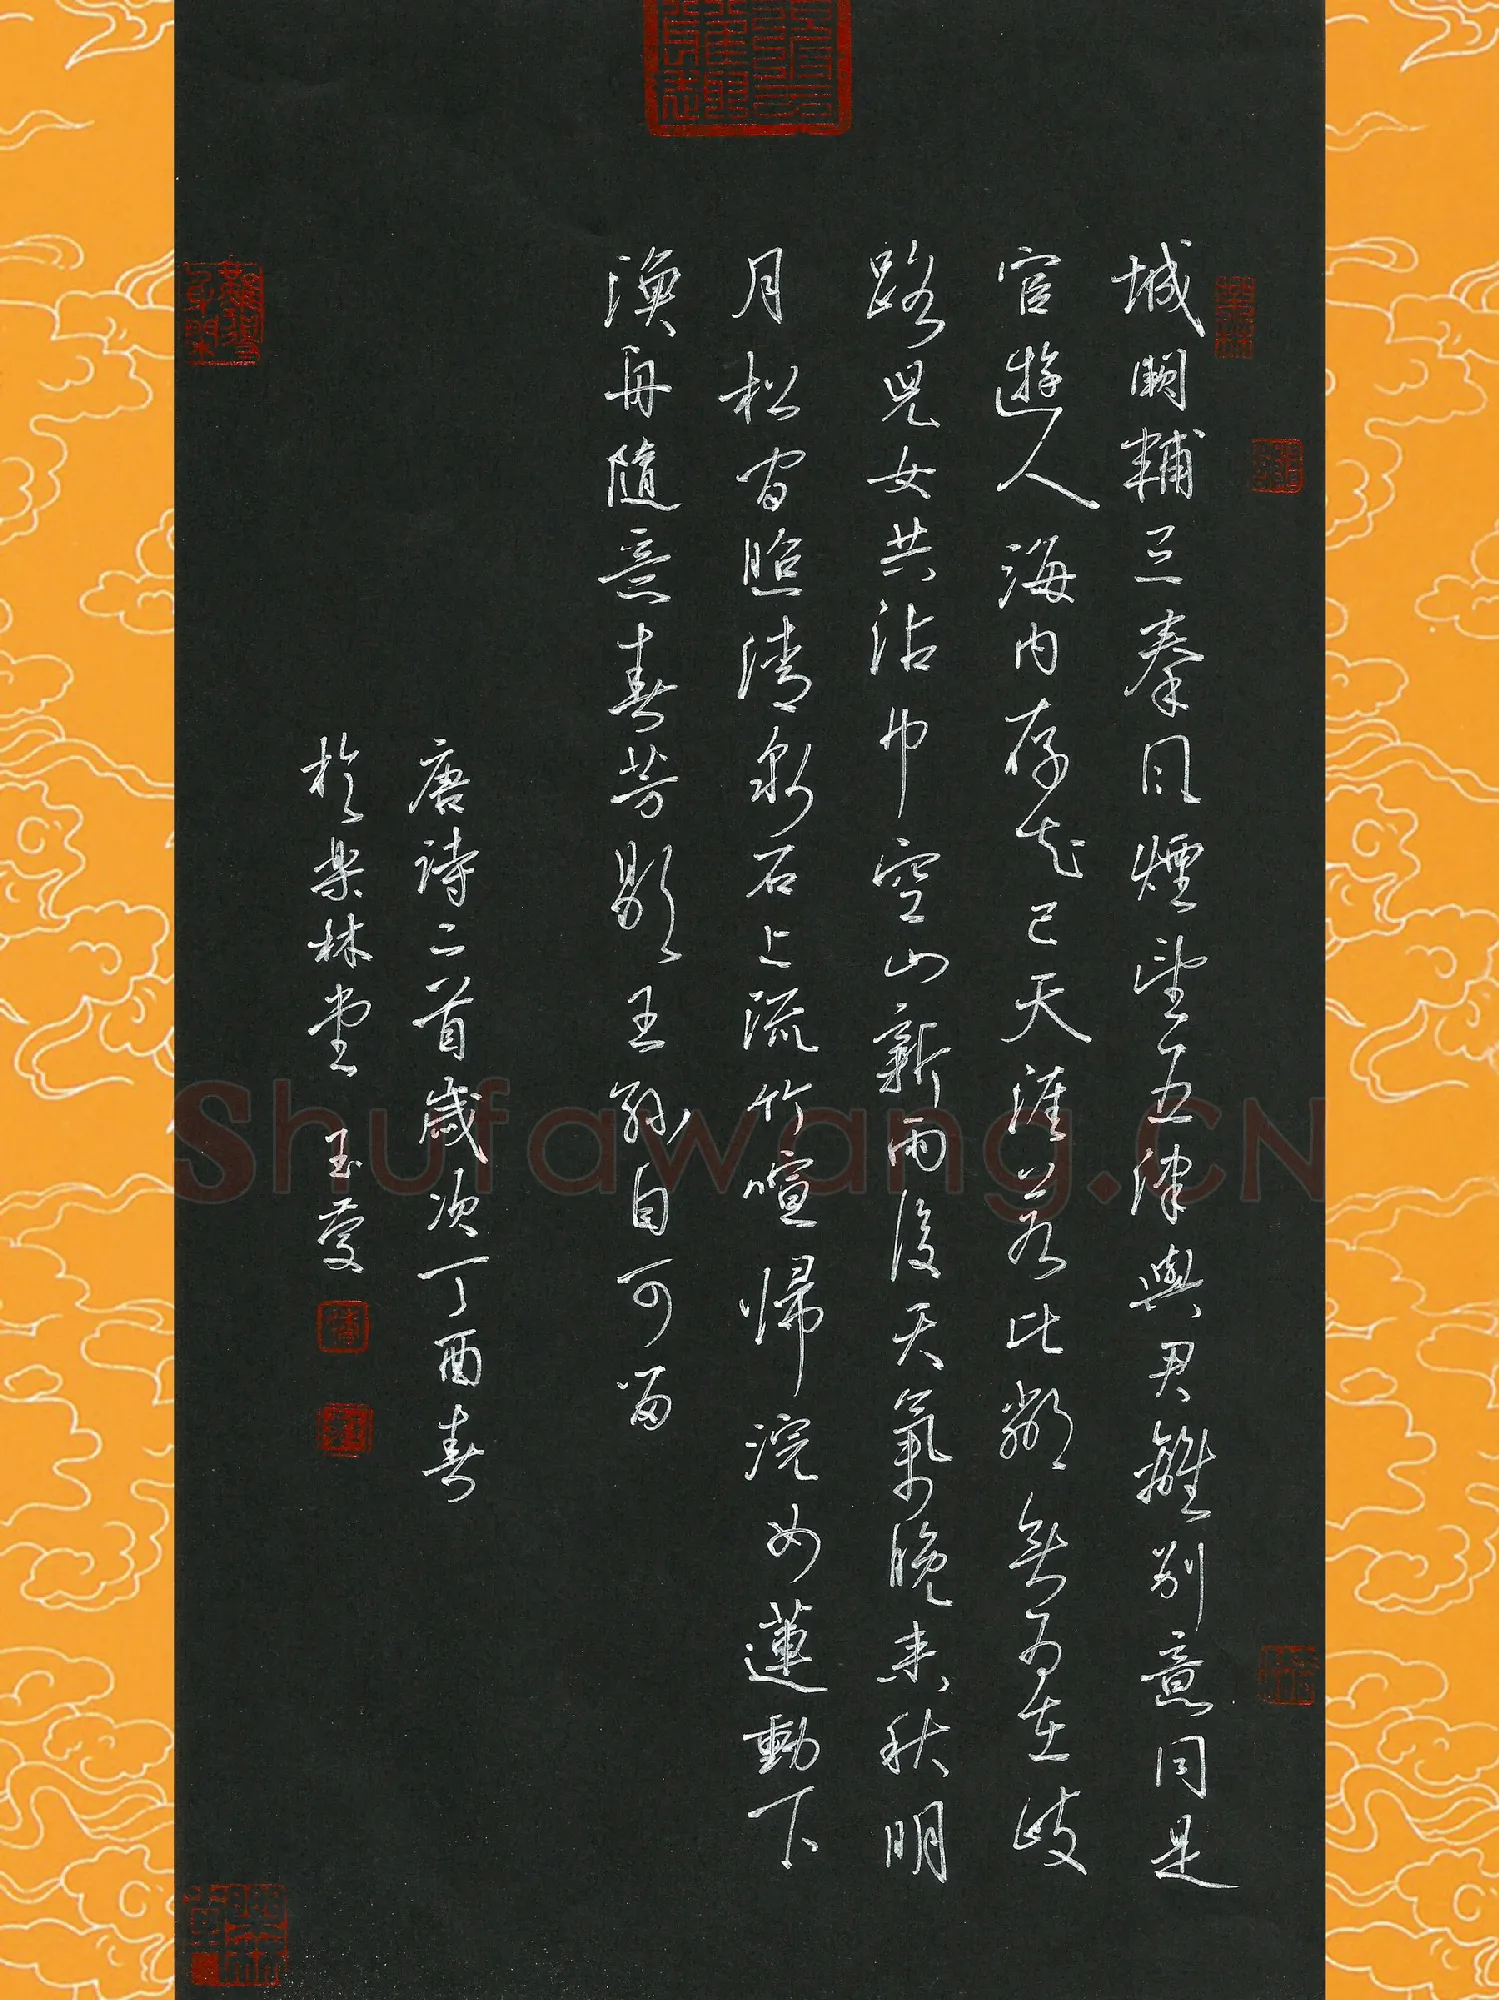 城闕輔三秦風煙望五津與君離別意同是
宦遊人海内存知己天涯若比鄰無為在歧
路兒女共沾巾空山新雨後天氣晚来秋明
月松間照清泉石上流竹喧帰浣女蓮動下
漁舟隨意春芳歇王孫自可留
唐詩二首歲次丁酉春
於楽林堂 玉蔓
Shufawang.CN